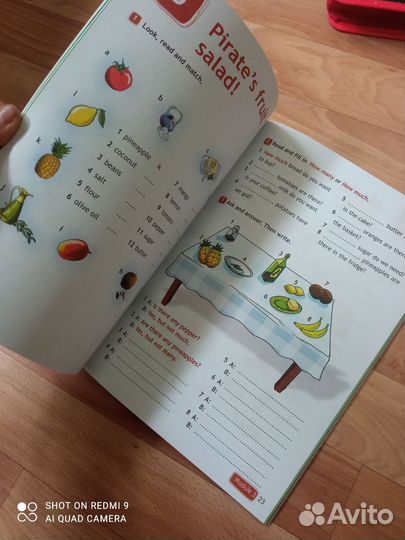 Pirate's fruit
salad!
1 Look, read and match.
a
b
l
k
h
1 pineapple k
2 coconut
3 beans
4 salt
5 flour
6 olive oil
7 mango
8 lemon
9 tomato
10 pepper
11 sugar
12 butter
Read and fill in. How many or How much.
1 How much bread do you want
to buy?
2 tomatoes are there?
3 milk do you want
in your coffee?
4 potatoes have
we got?
5 butter
in the cake?
6 oranges are there
the basket?
7 sugar do we need?
8 pineapples are
there in the fridge?
Ask and answer. Then write.
1
2
3
4
5
6
7
8
1 A: Is there any pepper?
B: Yes, but not much.
2 A: Are there any pineapples?
B: Yes, but not many.
3 A:
B:
4 A:
B:
5 A:
B:
6 A:
B:
7 A:
B:
8 A:
B:
Module 3
23
SHOT ON REDMI 9
AI QUAD CAMERA
Avito